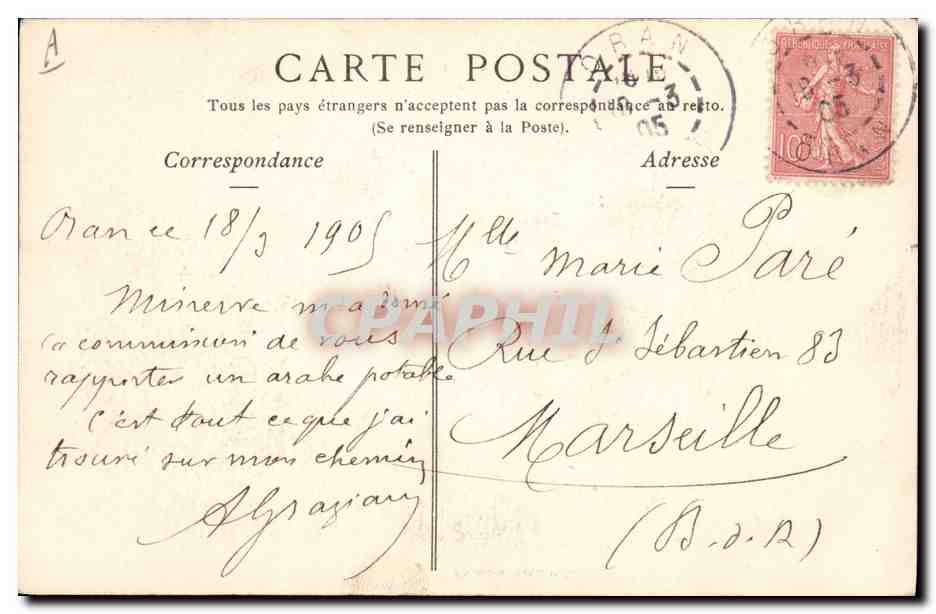 A
CARTE POSTALE
Tous les pays étrangers n'acceptent pas la correspondance au recto.
(Se renseigner à la Poste).
Correspondance
Adresse
ORAN
18 -3
05
ORAN
18 -3
05
REPUBLIQUE FRANÇAISE
10
Oran ce 18/3 1905
Minerve m a donné
la commission de vous
rapporter un arabe potable
C'est tout ce que j'ai
trouvé sur mon chemin
AGraziani
Mlle Marie Paré
Rue St Sébastien 83
Marseille
(B. d. R)
CPAPHIL